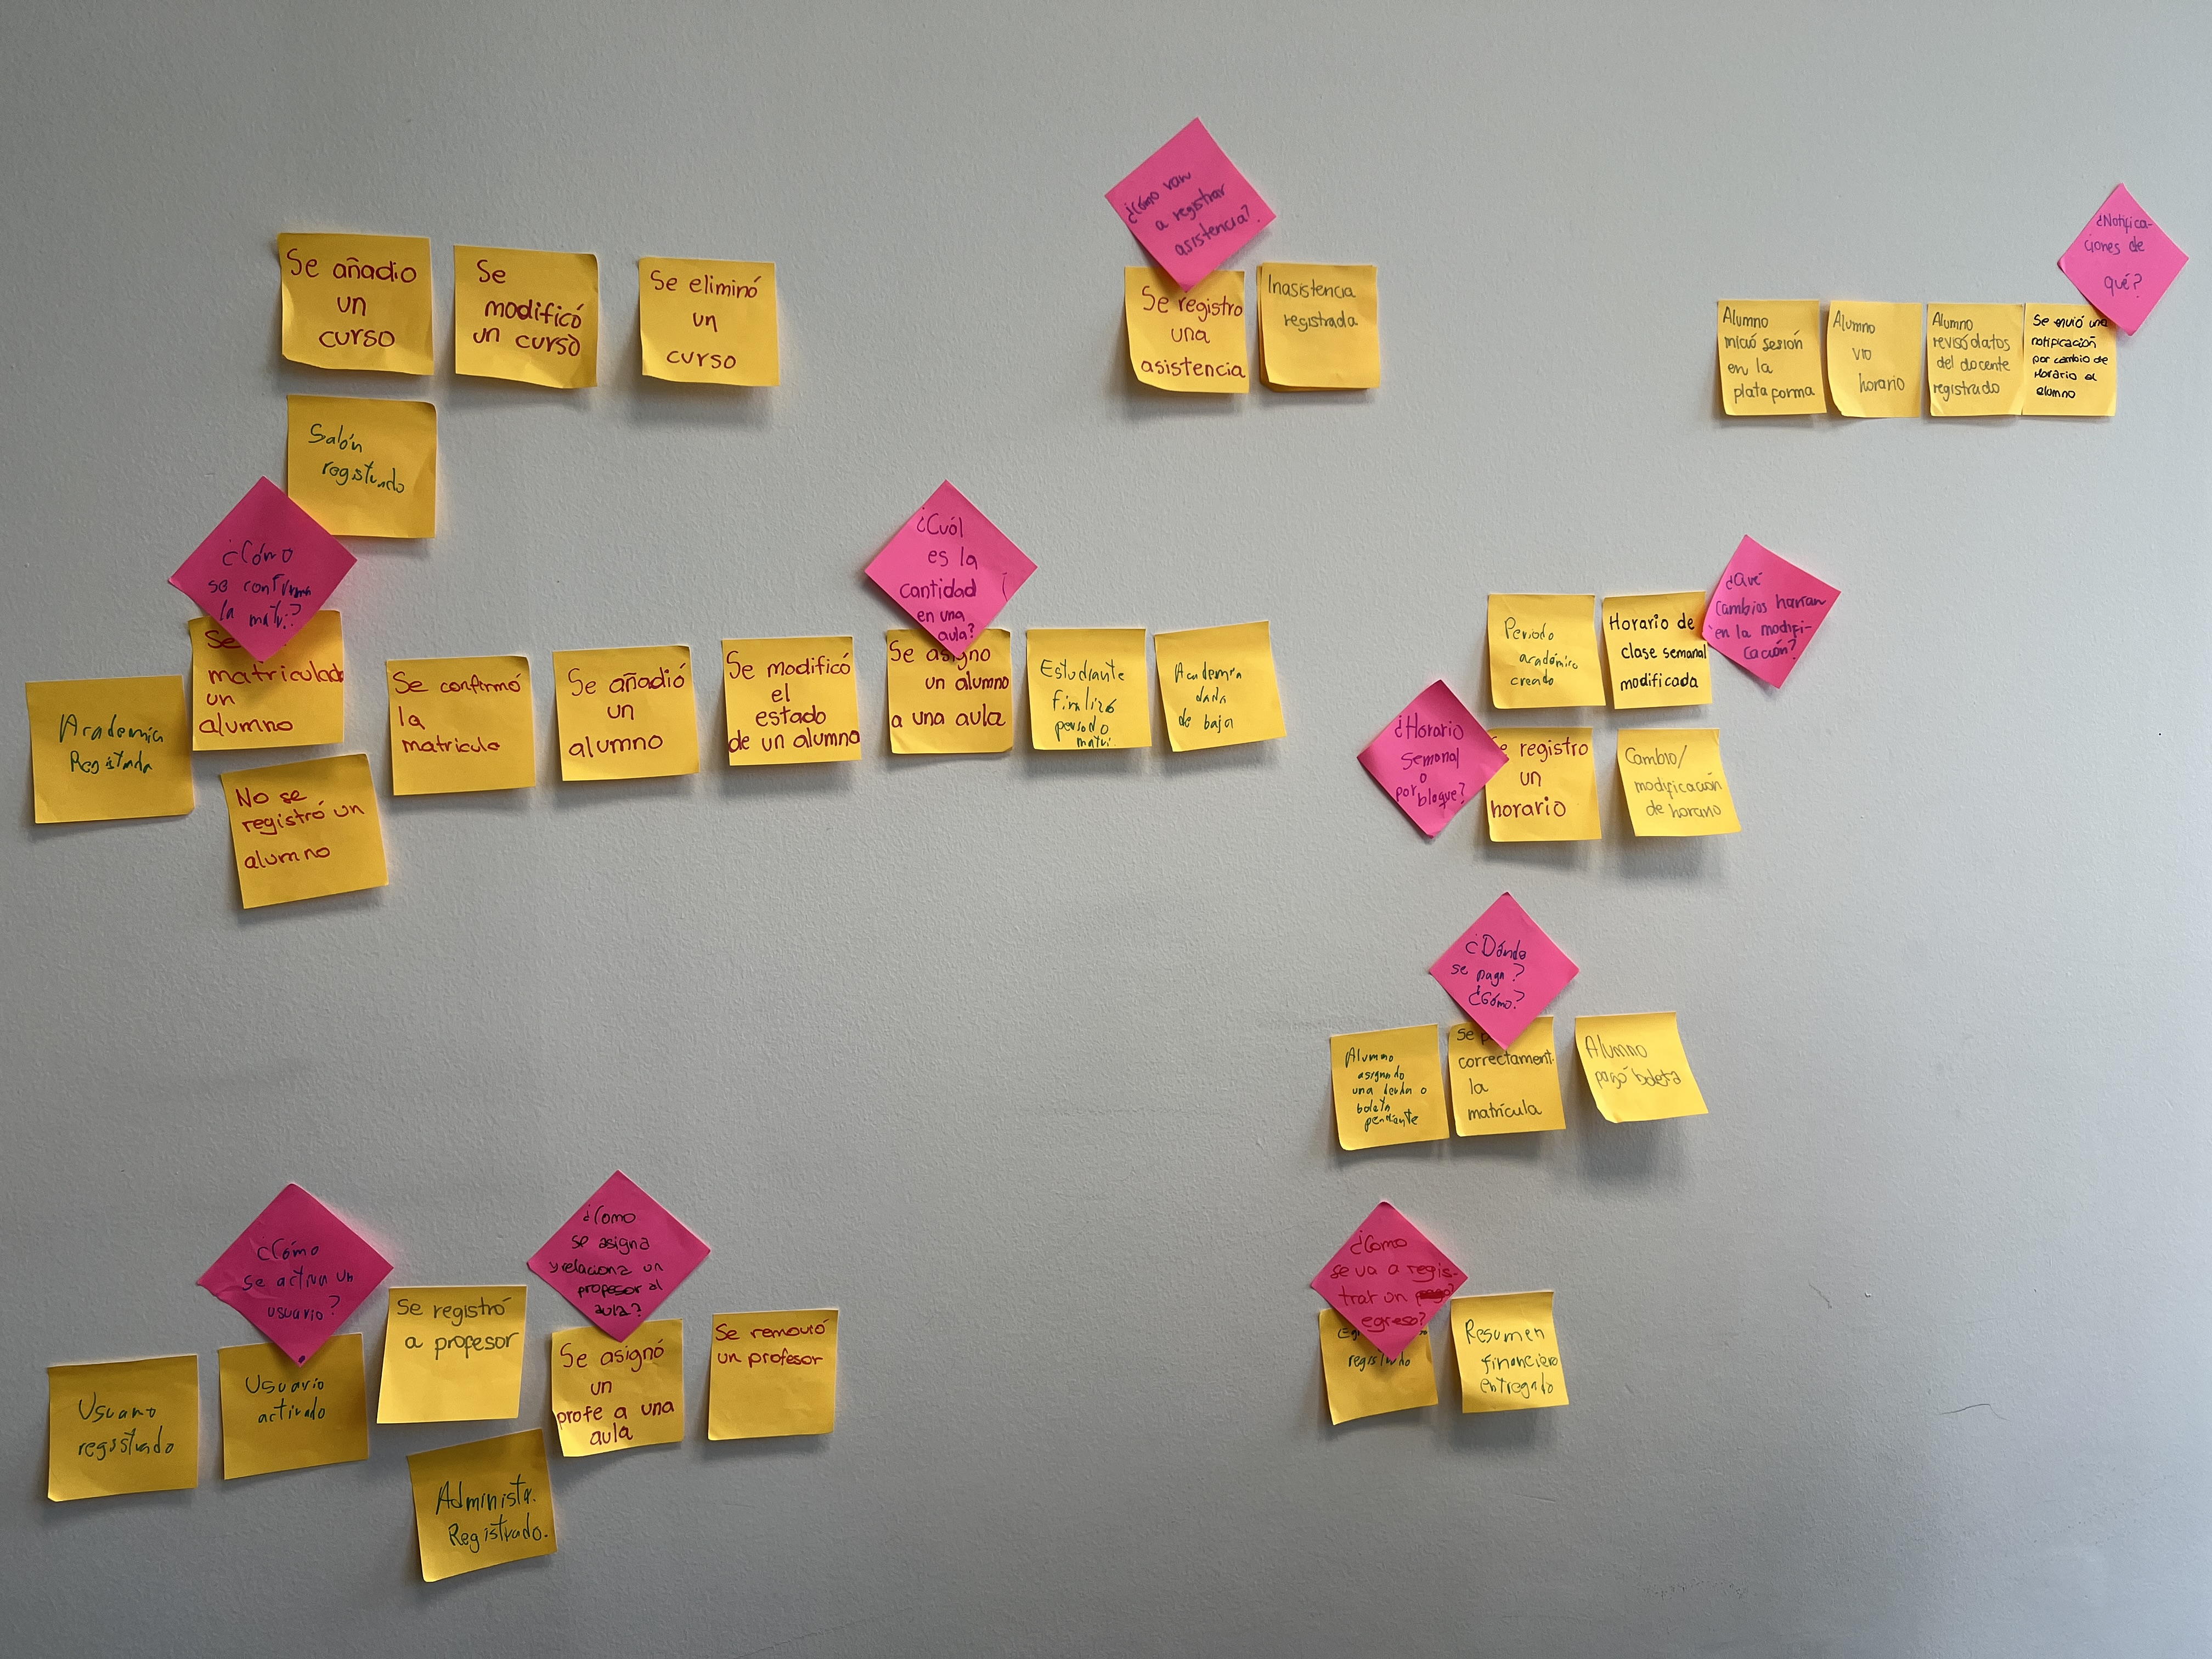 Se añadio
un
curso
Se
modificó
un curso
Se eliminó
un
curso
Salón
registrado
¿Cómo van
a registrar
asistencia?
Se registro
una
asistencia
Inasistencia
registrada
¿Notifica-
ciones de
qué?
Alumno
inició sesión
en la
plataforma
Alumno
vio
horario
Alumno
revisó datos
del docente
registrado
Se envió una
notificación
por cambio de
Horario al
alumno
¿Cómo
se confirma
la matri?
Academia
Registrada
Se
matriculado
un
alumno
No se
registró un
alumno
Se confirmó
la
matricula
Se añadió
un
alumno
Se modificó
el
estado
de un alumno
¿Cuál
es la
cantidad
en una
aula?
Se asigno
un alumno
a una aula
Estudiante
finalizó
periodo
matri.
Academia
dada
de baja
Periodo
académico
creado
Horario de
clase semanal
modificada
¿Qué
Cambios harían
en la modifi-
cación?
¿Horario
Semanal
o
por bloque?
Se registro
un
horario
Cambio/
modificación
de horario
¿Dónde
se paga?
¿Cómo?
Alumno
asignado
una deuda o
boleta
pendiente
Se p
correctament.
la
matrícula
Alumno
pagó boleta
¿Cómo
se activa un
usuario?
Usuario
registrado
Usuario
activado
Se registró
a profesor
Administa.
Registrado.
¿Como
se asigna
y relaciona un
profesor al
aula?
Se asignó
un
profe a una
aula
Se removió
un profesor
¿Como
se va a regis-
trar un
egreso?
registrado
Resumen
financiero
entregado